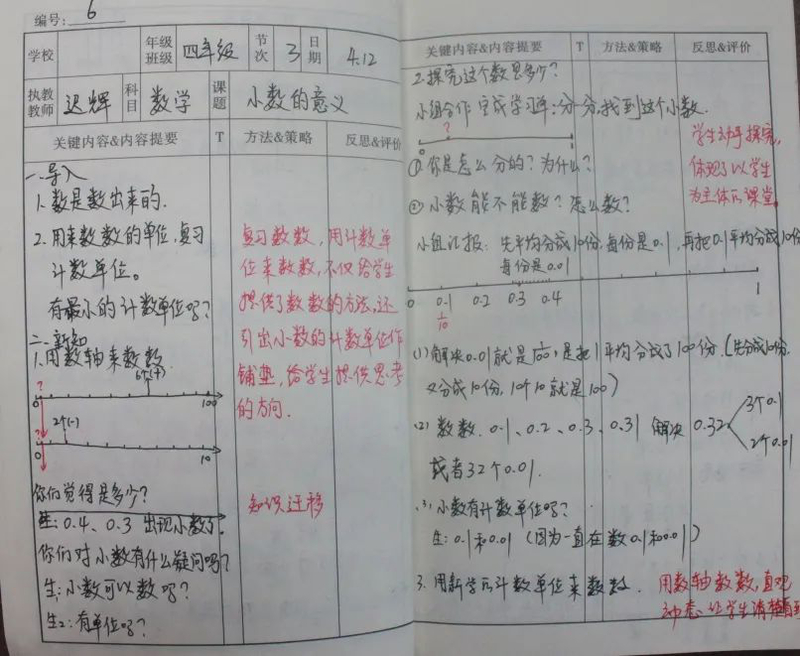 编号: 6
学校
年级班级 四年级 节次 3 日期 4.12
执教教师 迟辉 科目 数学 课题 小数的意义
关键内容&内容提要 T 方法&策略 反思&评价
一.导入
1.数是数出来的.
2.用来数数的单位,复习
计数单位。
有最小的计数单位吗?
复习数数,用计数单
位来数数,不仅给学生
提供了数数的方法,还
引出小数的计数单位作
铺垫,给学生提供思考
的方向.
二.新知
1.用数轴来数数
? 6个(十)
0 100
? 2个(一)
0 10
你们觉得是多少?
生:0.4、0.3 出现小数了.
知识迁移
你们对小数有什么疑问吗?
生:小数可以数吗?
生2:有单位吗?
关键内容&内容提要 T 方法&策略 反思&评价
2.探究这个数是多少?
小组合作 完成学习单:分一分,找到这个小数.
?
0 1
①你是怎么分的?为什么?
②小数能不能数?怎么数?
学生动手探究,
体现了以学生
为主体的课堂
小组汇报: 先平均分成10份,每份是0.1,再把0.1平均分成10份
每份是0.01
0 0.1 0.2 0.3 0.4 1
1/10
(1)解决0.01就是1/100,是把1平均分成了100份.(先分成10份,
又分成10份,10个10就是100)
(2)数数.0.1、0.2、0.3、0.31 解决 0.32 3个0.1
2个0.01
或者32个0.01.
(3)小数有计数单位吗?
生:0.1和0.01 (因为一直在数0.1和0.01)
3.用新学的计数单位来数数.
用数轴数数,直观